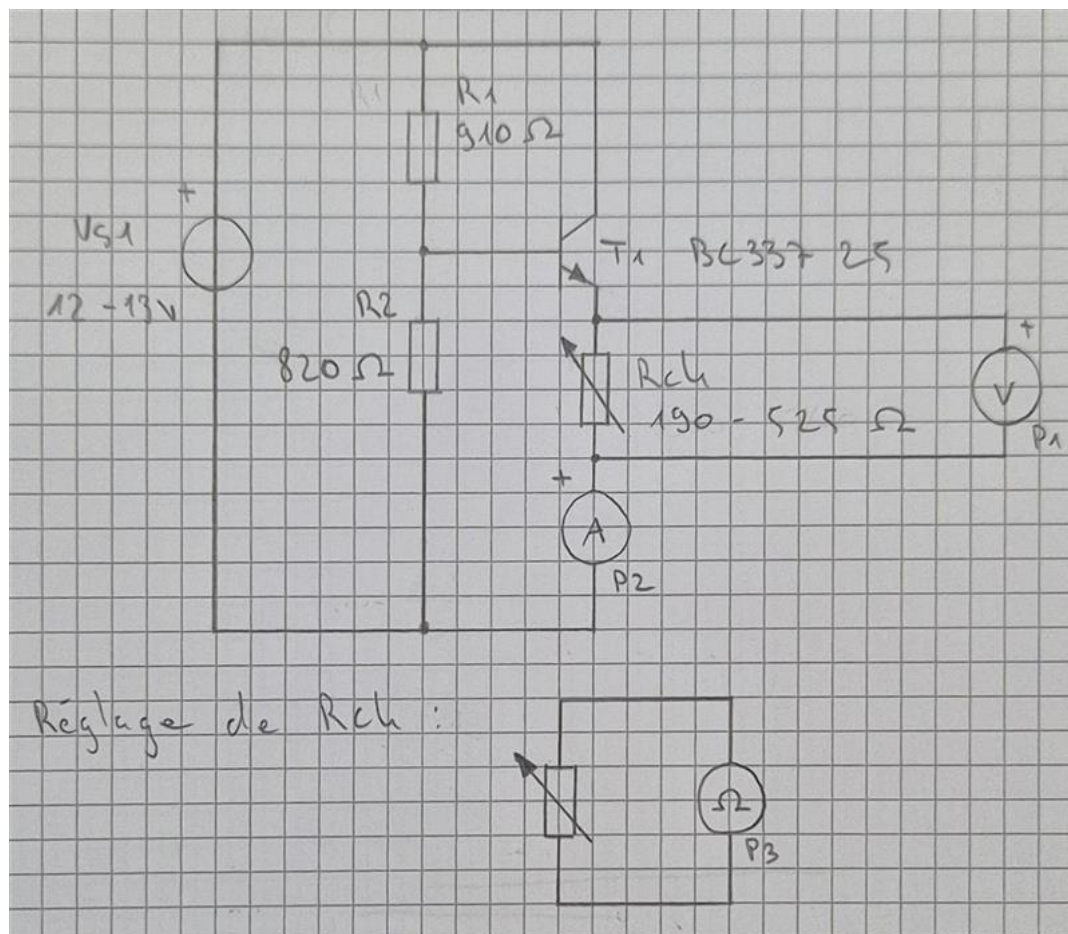 R1
R1
910 Ω
+
VS1
T1 BC337 25
12-13V
R2
820 Ω
+
Rch
190 - 525 Ω
V
P1
+
A
P2
Réglage de Rch :
Ω
P3